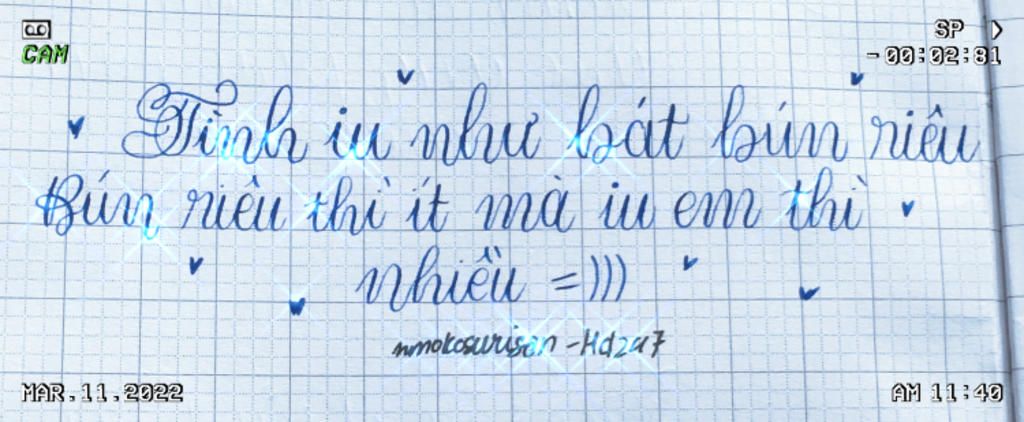 SP
CAM
-00:02:81
Tình iu như bát bún riêu
Bún riêu thì ít mà iu em thì
nhiều =)))
nmokosurisan - Hd2a7
MAR.11.2022
AM 11:40